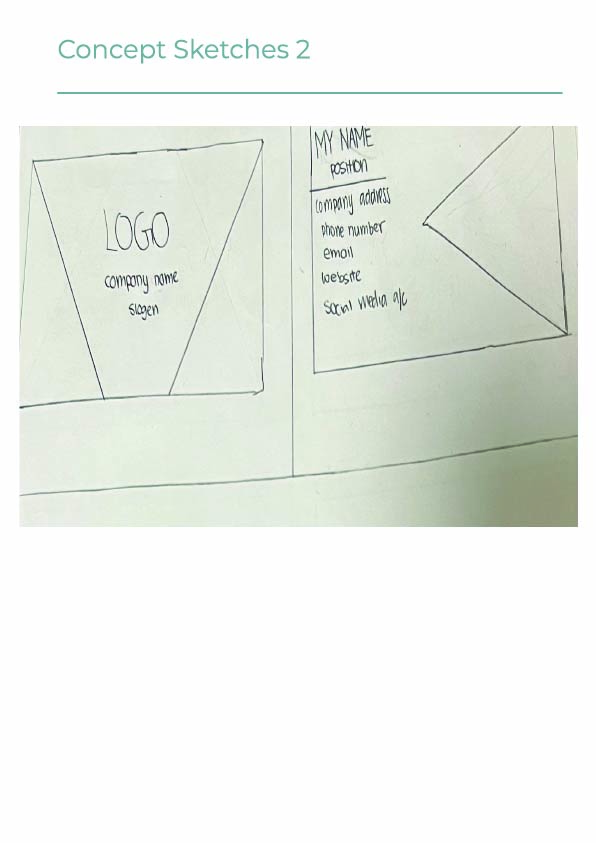 Concept Sketches 2
LOGO
company name
slogen
MY NAME
position
company address
phone number
email
website
social media a/c